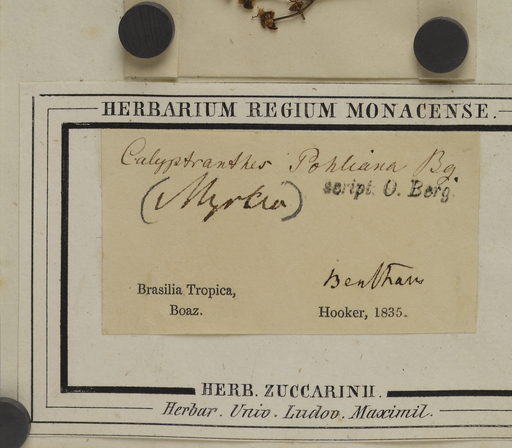 HERBARIUM REGIUM MONACENSE.
Calyptranthes Pohliana Bg
script. O. Berg.
(Myrtac)
Bentham
Brasilia Tropica,
Boaz.
Hooker, 1835.
HERB. ZUCCARINII.
Herbar. Univ. Ludov. Maximil.